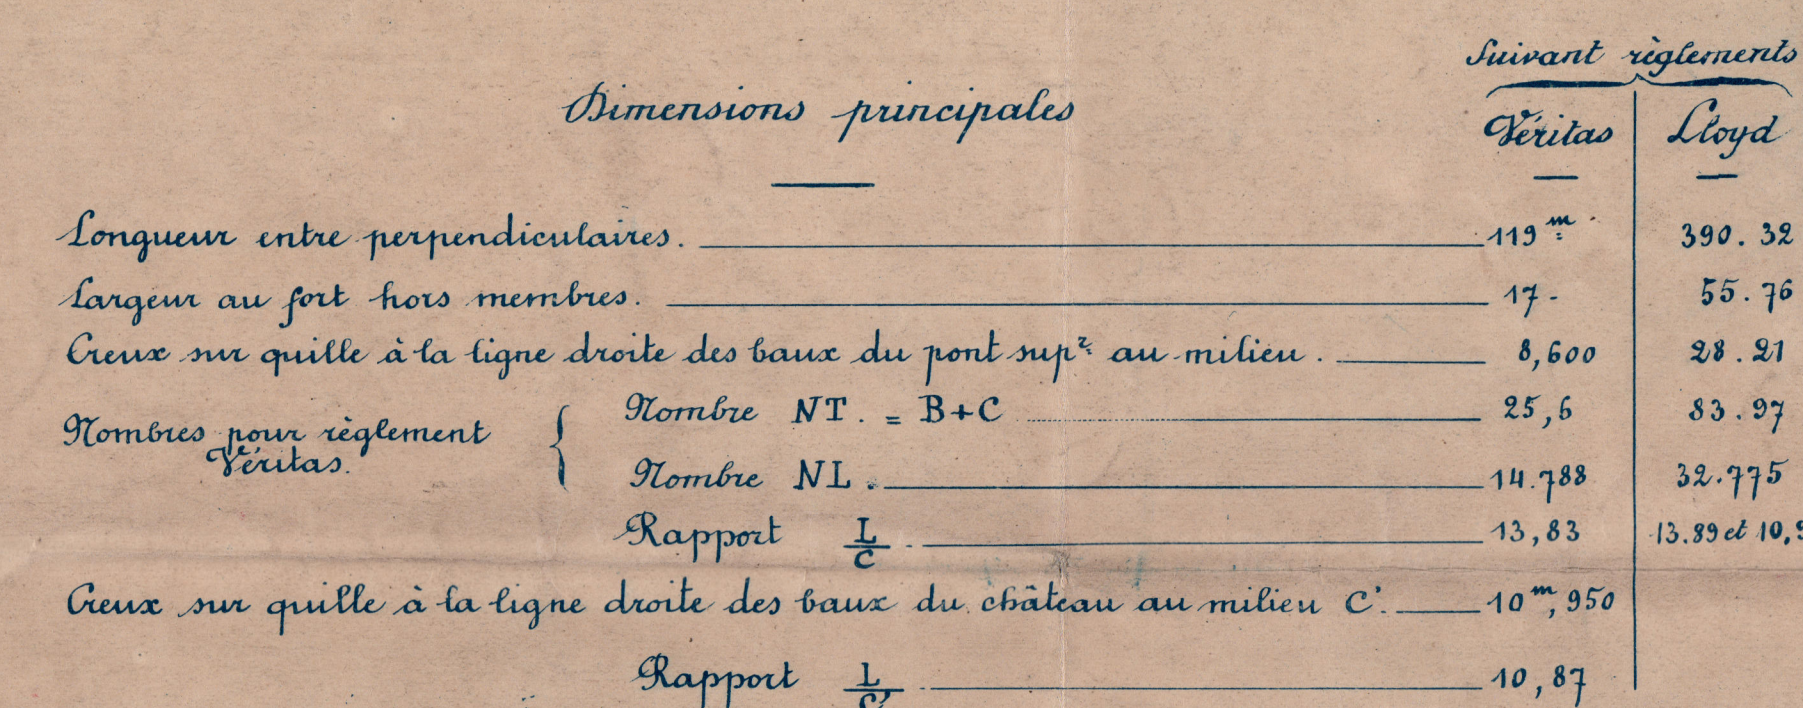 Suivant règlements
Dimensions principales
Véritas Lloyd
Longueur entre perpendiculaires. 119m 390.32
Largeur au fort hors membres. 17- 55.76
Creux sur quille à la ligne droite des baux du pont supr au milieu. 8,600 28.21
Nombres pour règlement Véritas. { Nombre NT. = B+C 25,6 83.97
Nombre NL. 14.788 32.775
Rapport L/C 13,83 13.89 et 10,
Creux sur quille à la ligne droite des baux du château au milieu C'. 10m,950
Rapport L/C' 10,87